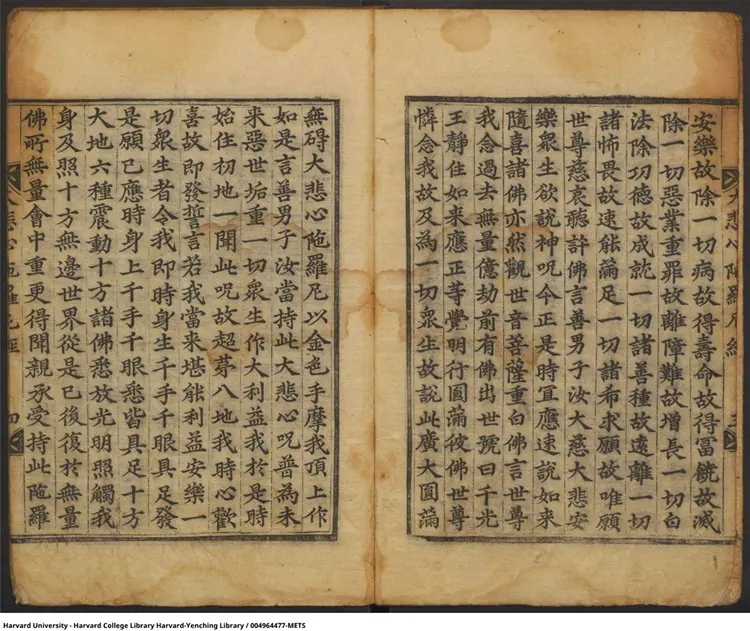 安樂故除一切病故得壽命故得冨饒故滅
除一切惡業重罪故離障難故增長一切白
法除功德故成就一切諸善種故遠離一切
諸怖畏故速能滿足一切諸希求願故唯願
世尊慈哀聽許佛言善男子汝大慈大悲安
樂衆生欲說神呪今正是時宜應速說如來
隨喜諸佛亦然觀世音菩薩重白佛言世尊
我念過去無量億劫前有佛出世號曰千光
王靜住如來應正等覺明行圓滿彼佛世尊
憐念我故及為一切衆生故說此廣大圓滿
大悲心陁羅尼經 三
無碍大悲心陁羅尼以金色手摩我頂上作
如是言善男子汝當持此大悲心呪普為未
來惡世垢重一切衆生作大利益我於是時
始住初地一聞此呪故超第八地我時心歡
喜故即發誓言若我當來堪能利益安樂一
切衆生者令我即時身生千手千眼具足發
是願已應時身上千手千眼悉皆具足十方
大地六種震動十方諸佛悉放光明照觸我
身及照十方無邊世界從是已後復於無量
佛所無量會中重更得聞親承受持此陁羅
大悲心陁羅尼經 四
Harvard University - Harvard College Library Harvard-Yenching Library / 004964477-METS